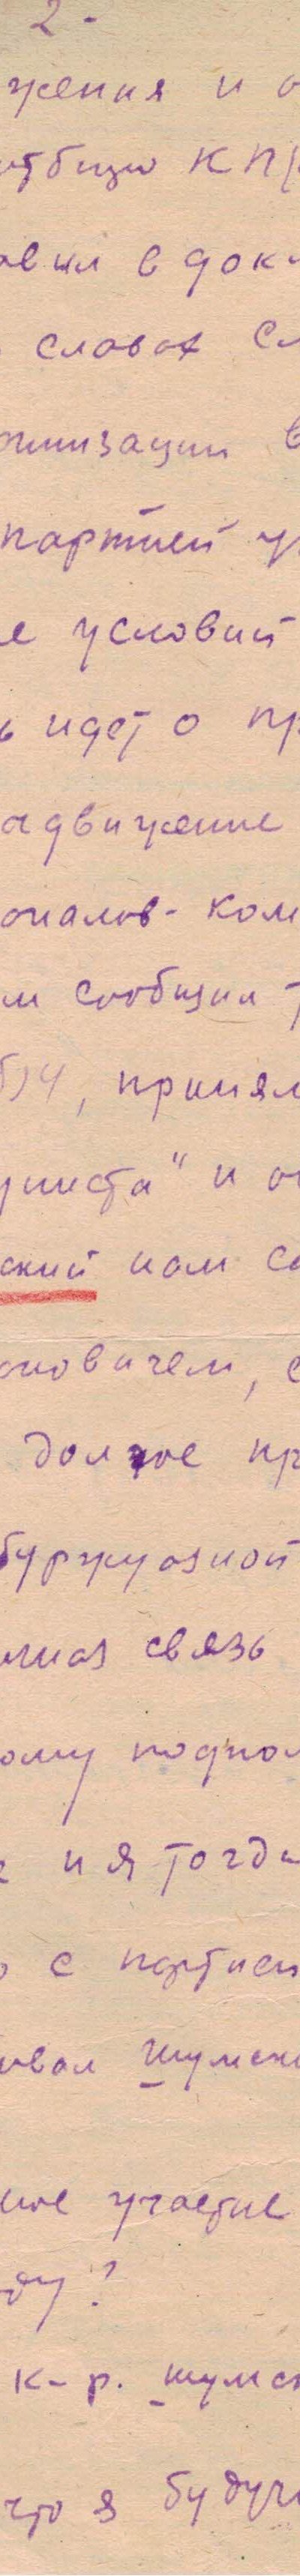 2 -
жения и о
итбюро КП(
овил в док
словах сл
онизации в
партией у
е условий
ь идет о пр
а движение
оналов - ком
м сообщил
б)У, принял
униста" и о
ский нам со
оновичем, с
должое пр
буржуазной
миая связь
ому подпол
и я тогда
о с партией
овал Шумски
ное участие
ду?
к-р. шумск
что я будучи